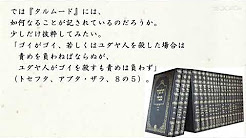 では『タルムード』には、
如何なることが記されているのだろうか。
少しだけ抜粋してみたい。
「ゴイがゴイ、若しくはユダヤ人を殺した場合は
責めを負わねばならぬが、
ユダヤ人がゴイを殺すも責めは負わず」
（トセフタ、アブタ・ザラ、８の５）。